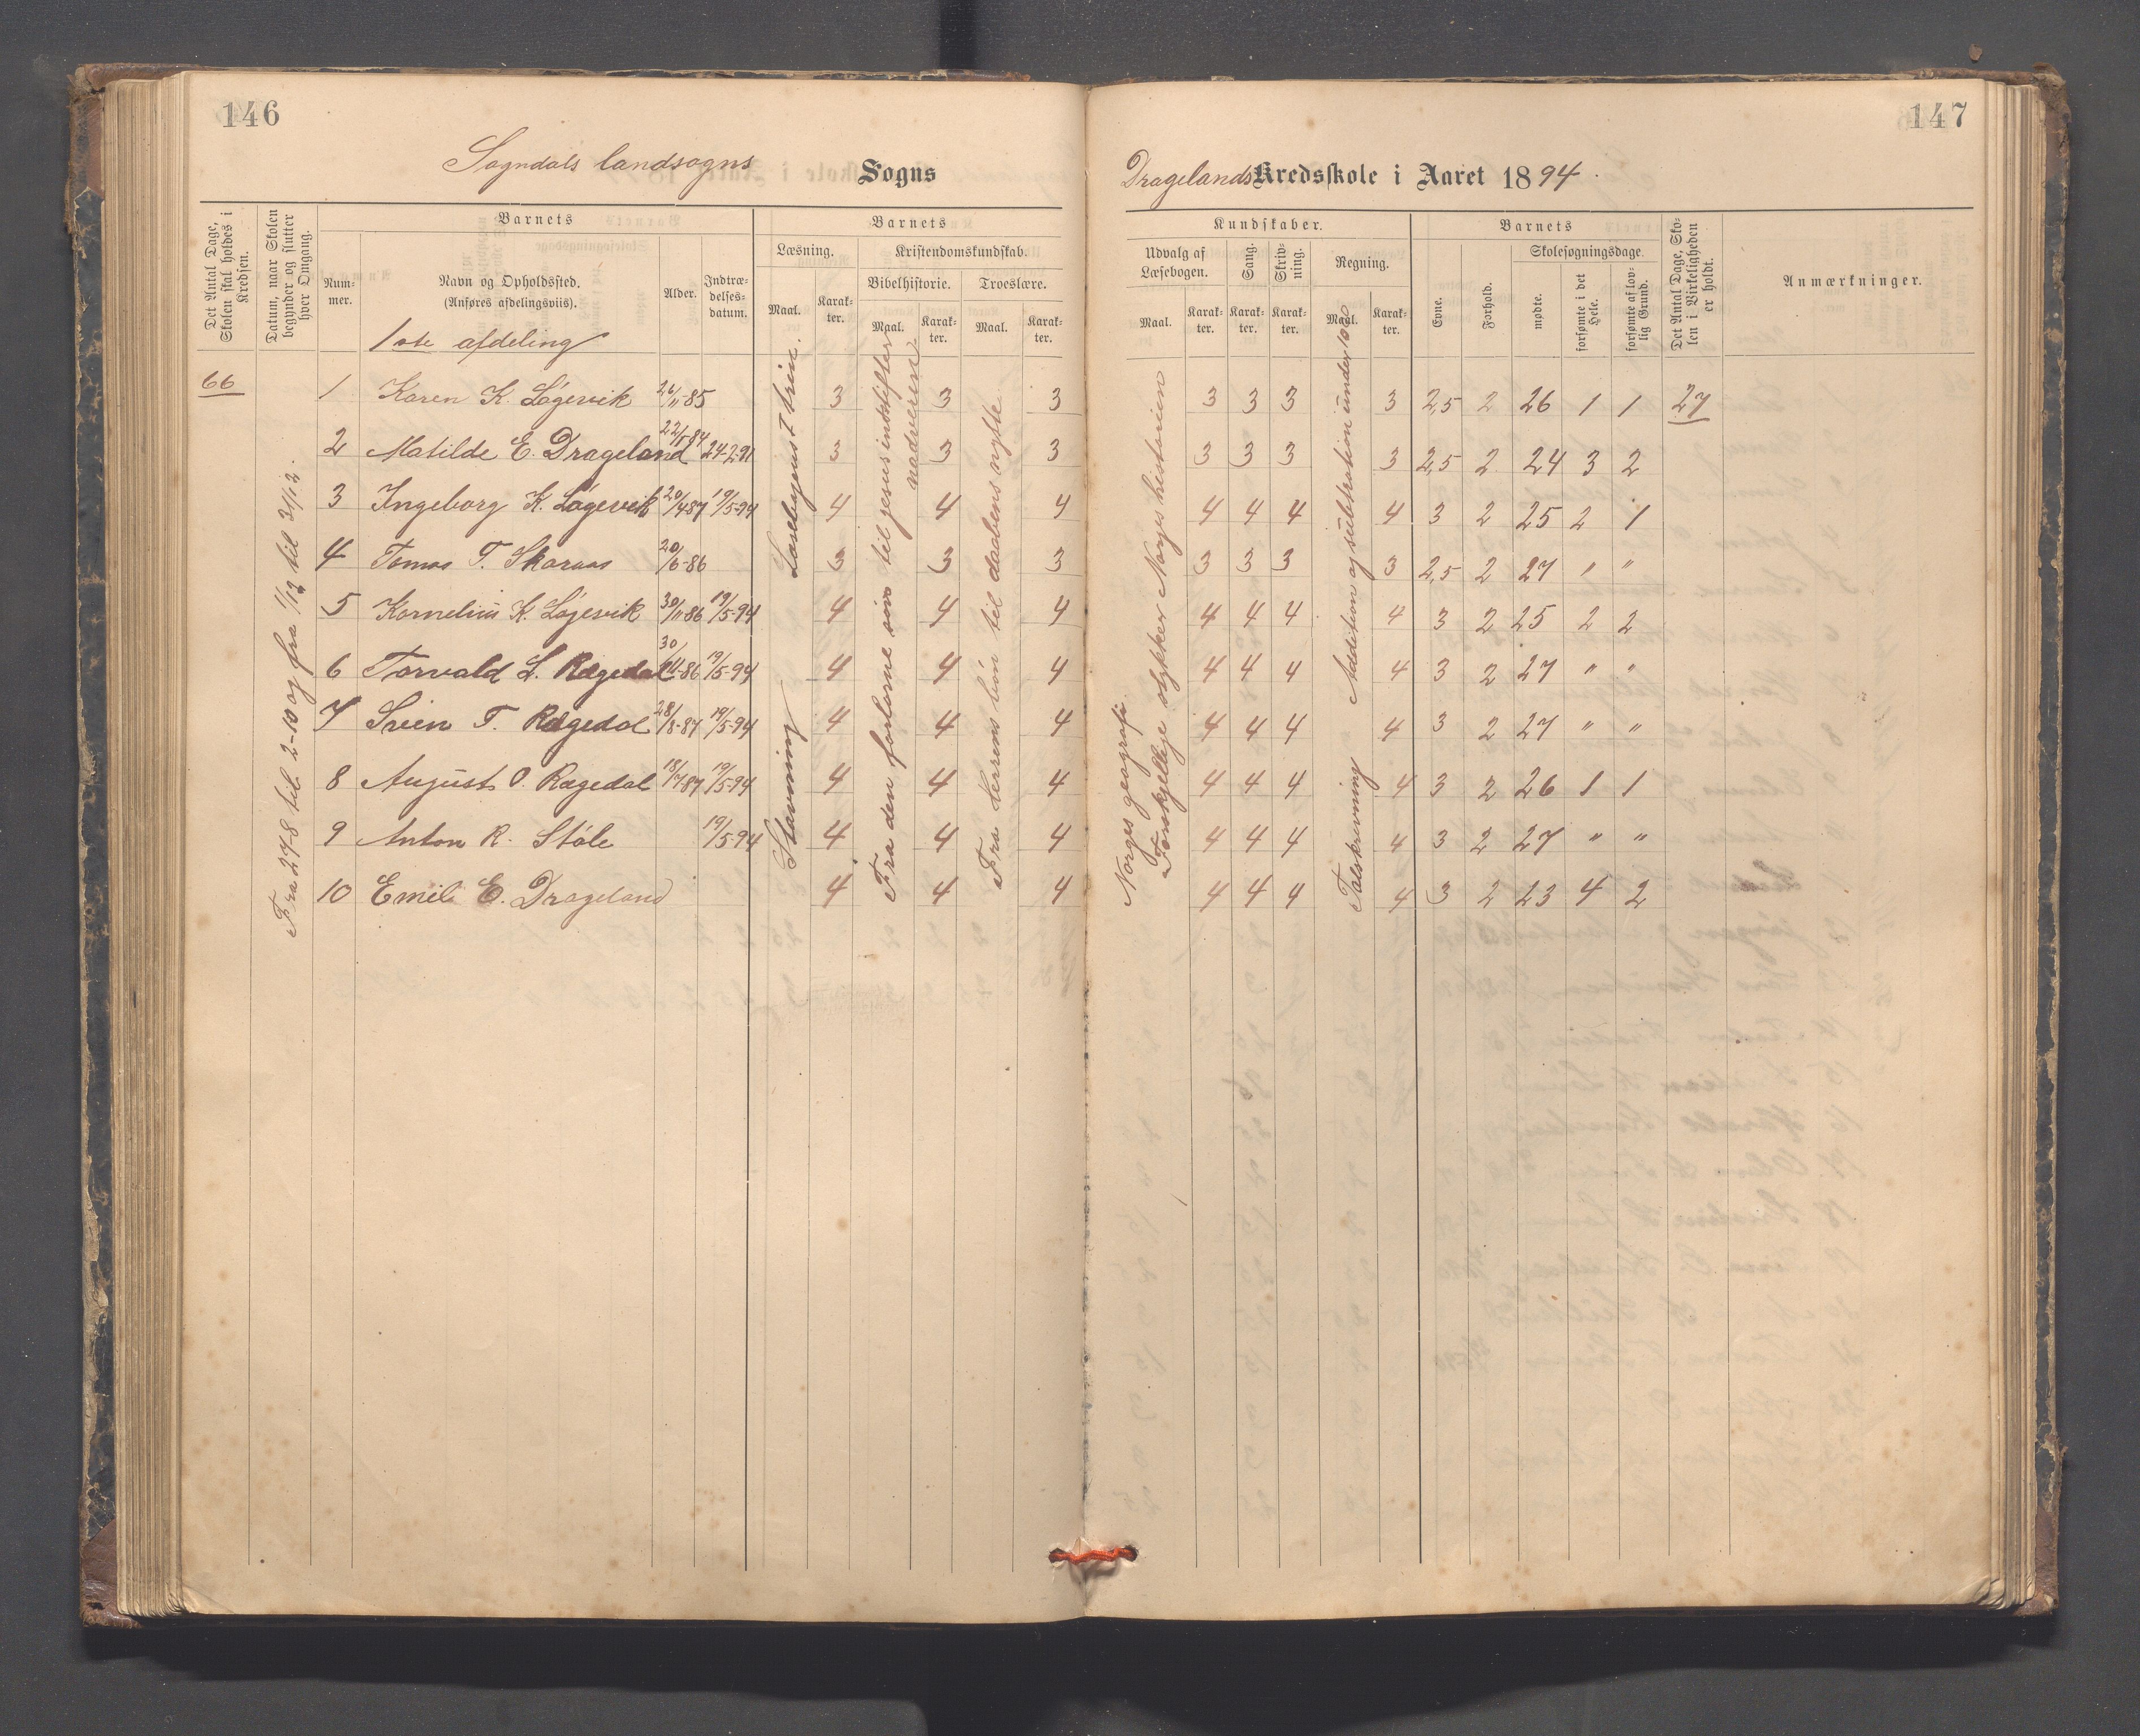 146
Sogndals landsogns Sogns
Det Antal Dage, Skolen skal holdes i Kredsen.
Datum, naar Skolen begynder og slutter hver Omgang.
Barnets
Num-
mer.
Navn og Opholdssted.
(Anføres afdelingsviis).
Alder.
Indtræ-
delses-
datum.
Barnets
Læsning.
Maal.
Karak-
ter.
Kristendomskundskab.
Bibelhistorie.
Maal.
Karak-
ter.
Troeslære.
Maal.
Karak-
ter.
1ste afdeling
66
Fra 27-8 til 2-10 og fra 1/12 til 31/12.
Stavning Læsebogens I trin.
Fra den forlorne søn til jesus indstifter nadveren
Fra Herrens bøn til daabens nytte.
1 Karen K. Løgevik 26/11-85 3 3 3
2 Matilde E. Drageland 22/1-84 24-2-91 3 3 3
3 Ingeborg K. Løgevik 20/4 87 19/5-94 4 4 4
4 Tomas T. Skaraas 20/6-86 3 3 3
5 Kornelius K. Løgevik 30/11 86 19/5-94 4 4 4
6 Torvald L. Rægedal 30/11-86 19/5-94 4 4 4
7 Svein T. Rægedal 28/8-87 19/5-94 4 4 4
8 August O. Rægedal 18/7 87 19/5-94 4 4 4
9 Anton R. Støle 19/5-94 4 4 4
10 Emil E. Drageland 4 4 4
147
Dragelands Kredsskole i Aaret 1894.
Kundskaber.
Udvalg af
Læsebogen.
Maal.
Karak-
ter.
Sang.
Karak-
ter.
Skriv-
ning.
Karak-
ter.
Regning.
Maal.
Karak-
ter.
Barnets
Evne.
Forhold.
Skolesøgningsdage.
mødte.
forsømte i det Hele.
forsømte af lov-
lig Grund.
Det Antal Dage, Sko-
len i Virkeligheden
er holdt.
Anmærkninger.
Norges geografi.
Forskjellige stykker Norges historien
Talskrivning Addition og subtraktion under 1000
3 3 3 3 2,5 2 26 1 1 27
3 3 3 3 2,5 2 24 3 2
4 4 4 4 3 2 25 2 1
3 3 3 3 2,5 2 27 " "
4 4 4 4 3 2 25 2 2
4 4 4 4 3 2 27 " "
4 4 4 4 3 2 27 " "
4 4 4 4 3 2 26 1 1
4 4 4 4 3 2 27 " "
4 4 4 4 3 2 23 4 2